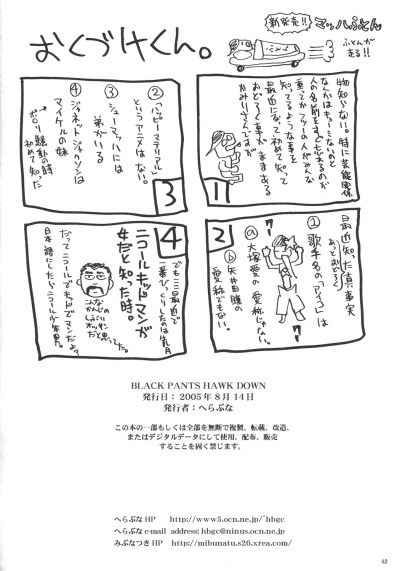 おくづけくん。
新発売!!
マッハふとん
ふとんが
走る!!
1
物知らない。特に芸能関係
なんかはもうこないのと
人の名前をすぐ忘れるのが
重ってか フツーの人がみんな
知ってるような事を
最近になって初めて知って
おどろく事がままある
かみりさんですが
2
最近知った真事実
あっとおどろく
①歌手名の「アイコ」は
ⓐ大塚愛の愛称じゃない。
ⓑ矢井田瞳の
愛称でもない。
3
②「ハッピーマテリアル」
というアニメはない。
③シューマッハには
弟がいる
④ジャネット・ジャクソンは
マイケルの妹
→ポロリ騒動の時
初めて知った
4
でも三最近で
一番びっくりしたのは先月
ニコールキッドマンが
女だと知った時。
こんな
かんじの
しぶいオッサン
だと思ってた。
だってニコールでキッドでマンだよ?
日本語にしたらニコール少年男。
BLACK PANTS HAWK DOWN
発行日：2005年8月14日
発行者：へらぶな
この本の一部もしくは全部を無断で複製、転載、改造、
またはデジタルデータにして使用、配布、販売
することを固く禁じます。
へらぶなHP http://www5.ocn.ne.jp/~hbgc
へらぶな e-mail address: hbgc@ninus.ocn.ne.jp
みぶなつきHP http://mibunatu.s26.xrea.com/
42